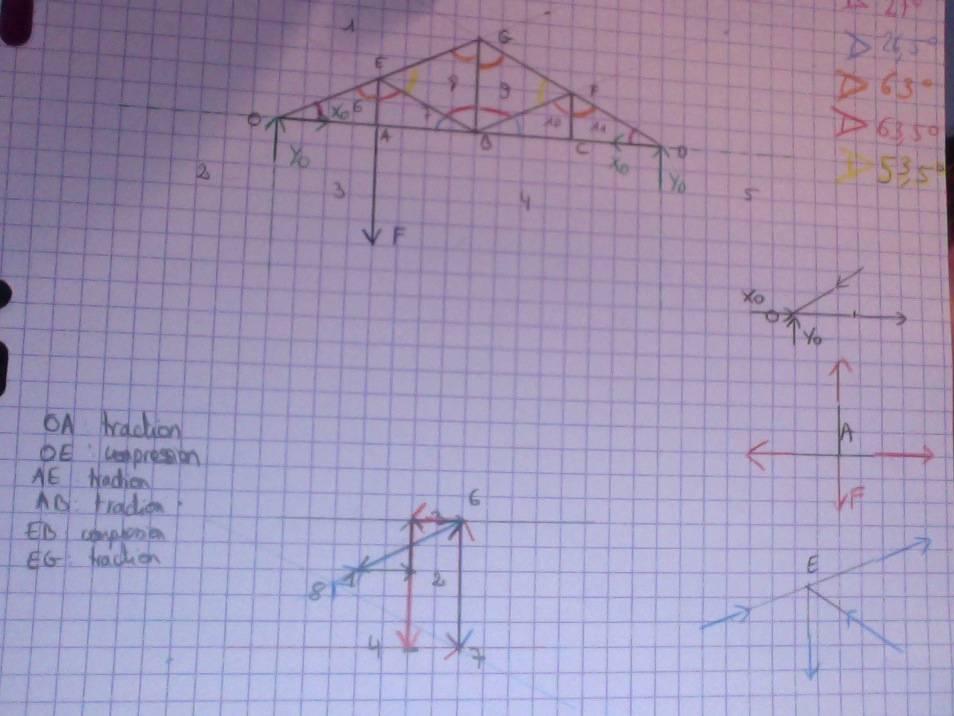 1
G
E
F
8
9
O
X₀
6
7
10
11
A
B
C
D
Y₀
X₀
Y₀
2
3
4
5
F
26,5°
63°
63,5°
53,5°
X₀
O
Y₀
A
F
E
OA : traction
OE : compression
AE traction
AB : traction
EB compression
EG : traction
6
3
1
2
8
4
7